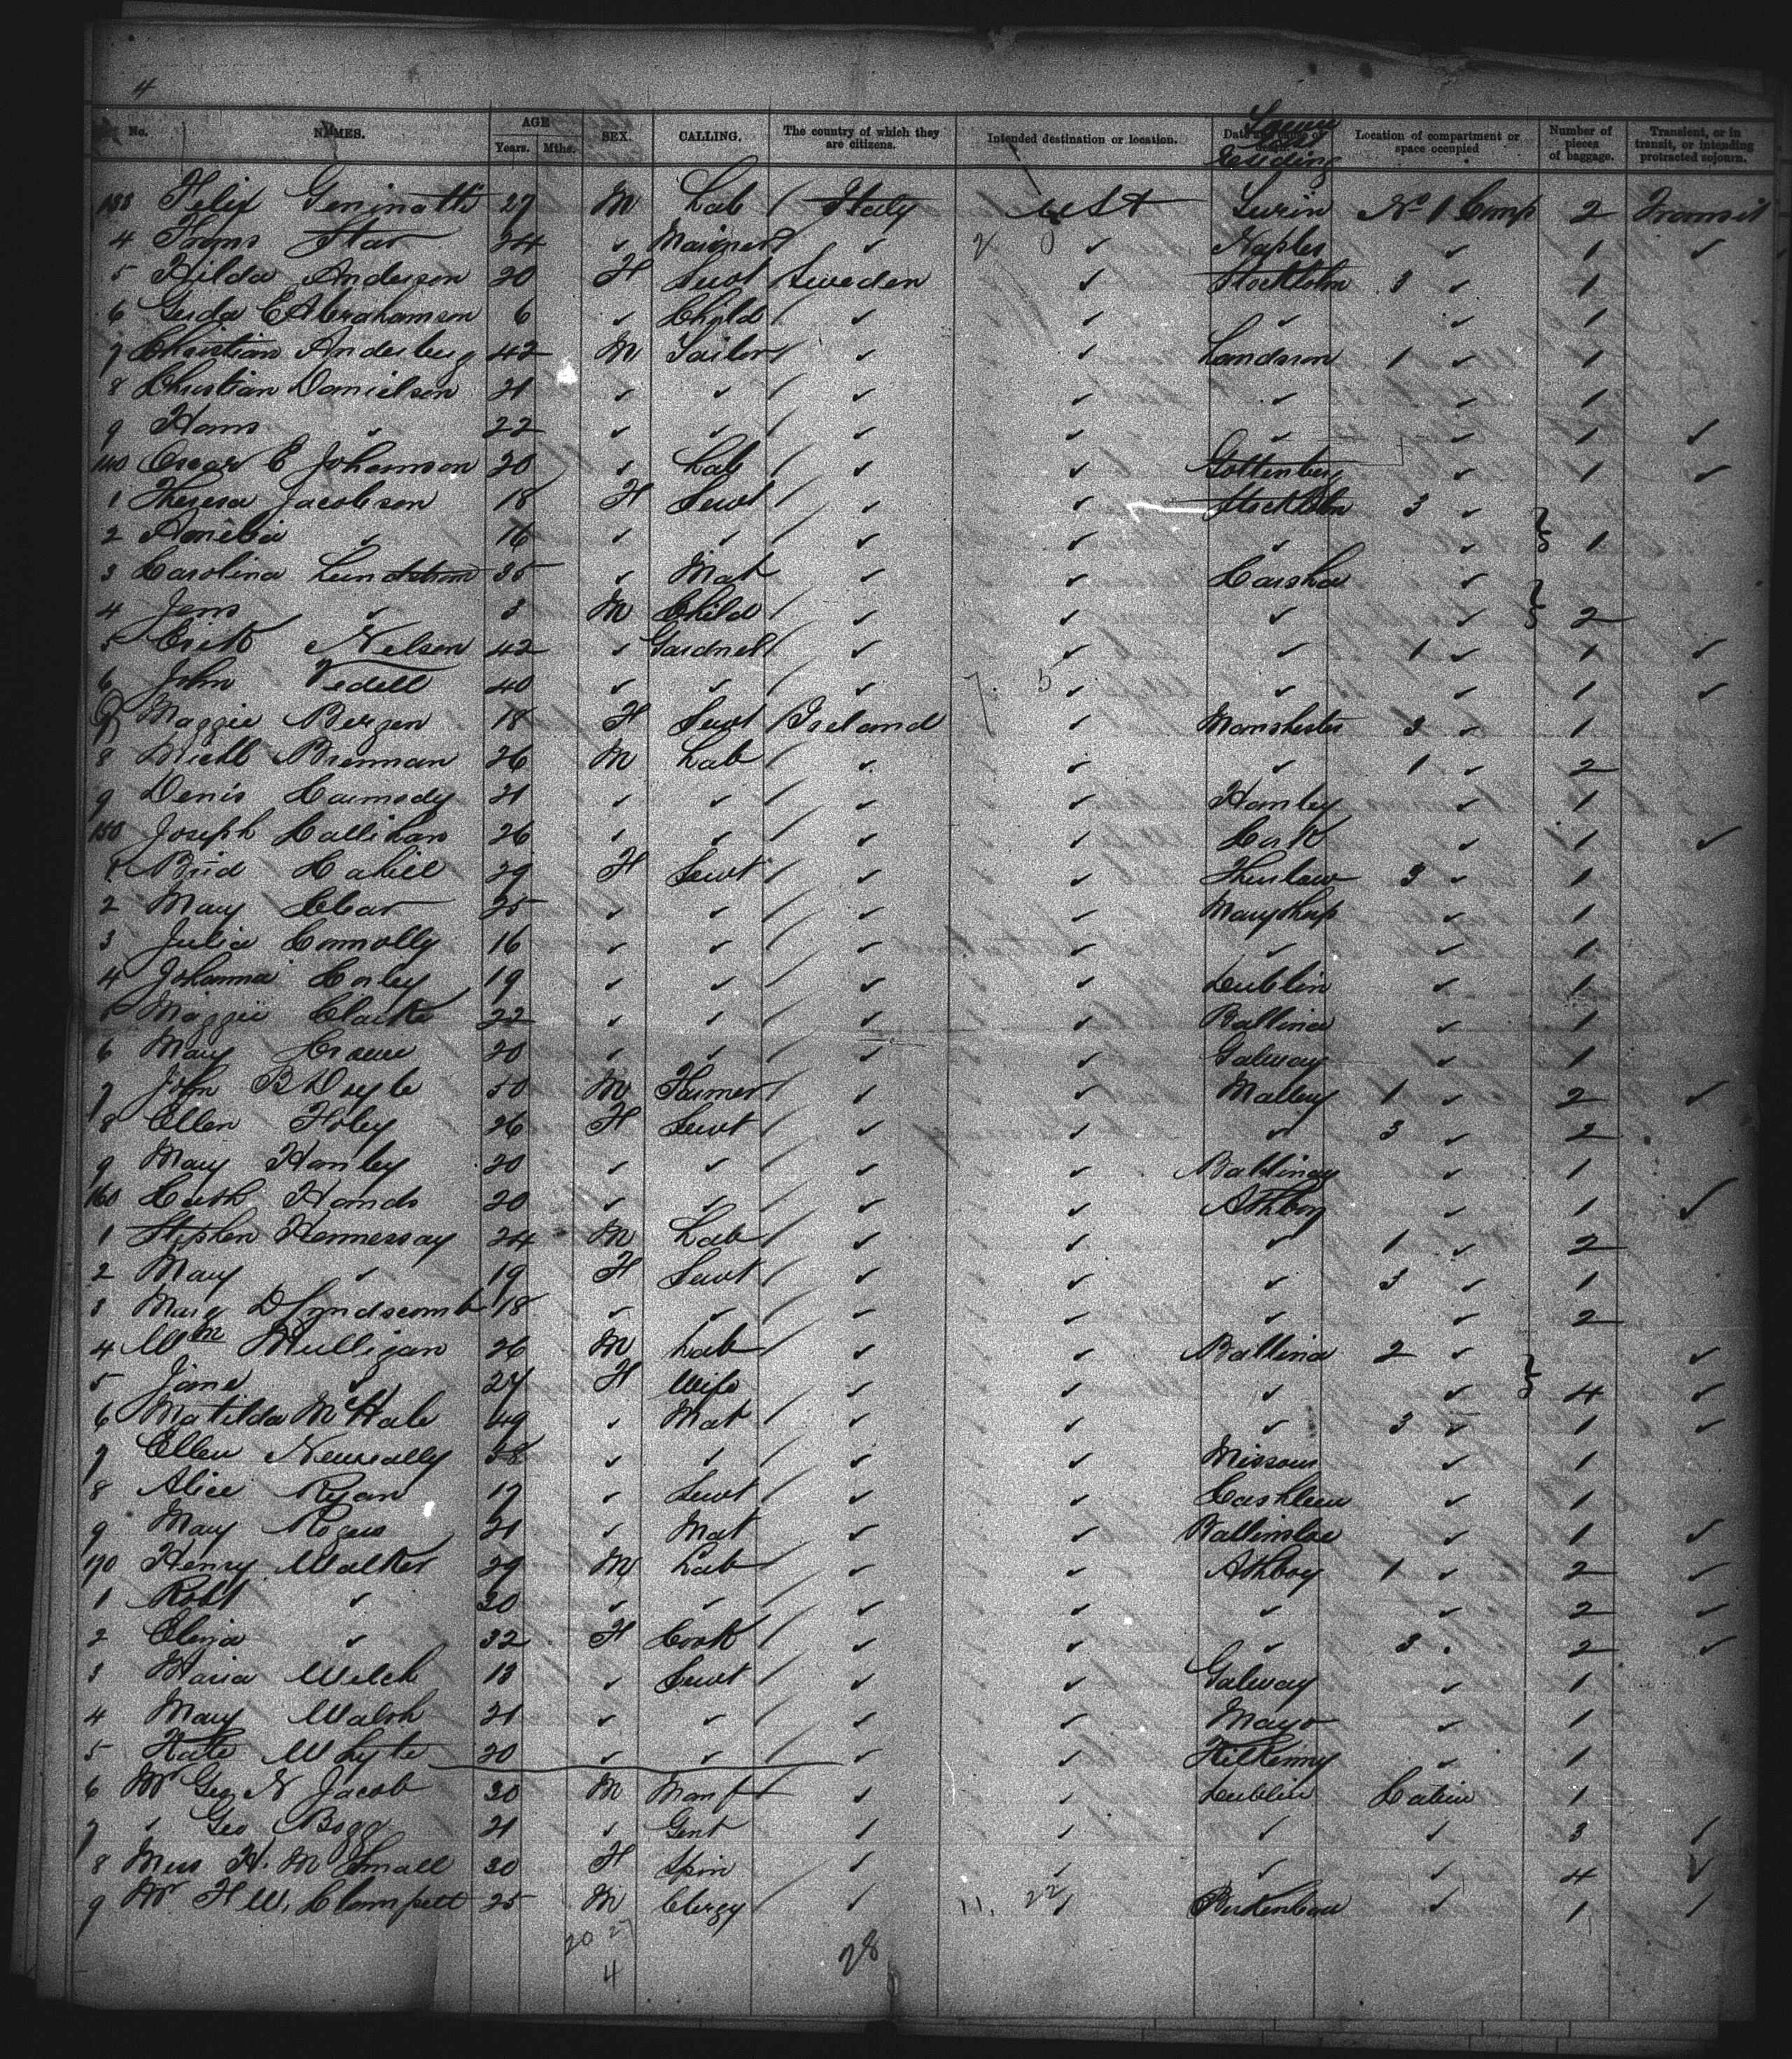 4
No. NAMES. AGE Years. Mths. SEX. CALLING. The country of which they are citizens. Intended destination or location. Date and cause of death. Location of compartment or space occupied Number of pieces of baggage. Transient, or in transit, or intending protracted sojourn.
Residing
133 Felix Geninatti 27 M Lab Italy USA Turin No 1 Comp 2 Transit
4 Star 24 " " " Naples " 1 "
5 Hilda Anderson 20 F Servt Sweden " Stockholm 3 " 1
6 Gerda E Abrahamson 6 " Child " " " " 1
7 Christian Anderberg 42 M Tailor " " 1 " 1
8 Christian Danielson 21 " " " " " " 1
9 Hans " 22 " " " " " " 1 "
140 Oscar E Johanson 20 " Lab " " Gottenberg " 1 "
1 Theresa Jacobson 18 F Servt " " Stockholm 3 "
2 Amelia " 16 " " " " " " 1
3 Carolina Lundstrom 35 " Mat " " "
4 Jens " 3 M Child " " " " 2
5 Erik Nelson 42 " " " " 1 " 1 "
6 John Vedell 40 " " " " " " 1 "
7 Maggie Bergen 18 F Servt Ireland " Manchester 3 " 1
8 Michl Brennan 26 M Lab " " " 1 " 2
9 Denis Carmody 21 " " " " Hanley " 1
150 Joseph Callihan 26 " " " " Cork " 1 "
1 Brid Cahill 29 F Servt " " 3 " 1
2 Mary Clear 25 " " " " " 1
3 Julia Connolly 16 " " " " " " 1
4 Johanna Corley 19 " " " " Dublin " 1
5 Maggie Clarke 22 " " " " Ballina " 1
6 Mary Crowe 20 " " " " Galway " 1
7 John B Doyle 50 M Farmer " " 1 " 2 "
8 Ellen Foley 26 F Servt " " " 3 " 2
9 Mary Hanley 20 " " " " " 1
160 Cath Hands 20 " " " " Athboy " 1 "
1 Stephen Hennessay 24 M Lab " " " 1 " 2
2 Mary " 19 F Servt " " " 3 " 1
3 18 " " " " " " 2
4 Wm Mulligan 26 M Lab " " Ballina 2 " "
5 Jane " 24 F Wife " " " " 4 "
6 Matilda McHale 49 " Mat " " " 3 " 1 "
7 Ellen 38 " " " " " 1
8 Alice Ryan 17 " Servt " " " 1
9 Mary Rogers 21 " Mat " " Ballinsloe " 1 "
170 Henry Walker 29 M Lab " " Athboy 1 " 2 "
1 Robt " 30 " " " " " " 2 "
2 Eliza " 32 F Cook " " " 3 " 2 "
3 Maria Welch 18 " Servt " " Galway " 1
4 Mary Walsh 21 " " " " Mayo " 1
5 Kate Whyte 20 " " " " Kilkenny " 1
6 Mr Geo N Jacob 30 M Manf " " Dublin Cabin 1
7 " Geo Bogg 21 " Gent " " " " 3 "
8 Miss H. M Small 30 F Spin " " " " 4 "
9 Mr H W. Clampett 25 M Clergy " 11. 22 " " 1 "
20 27
4 28